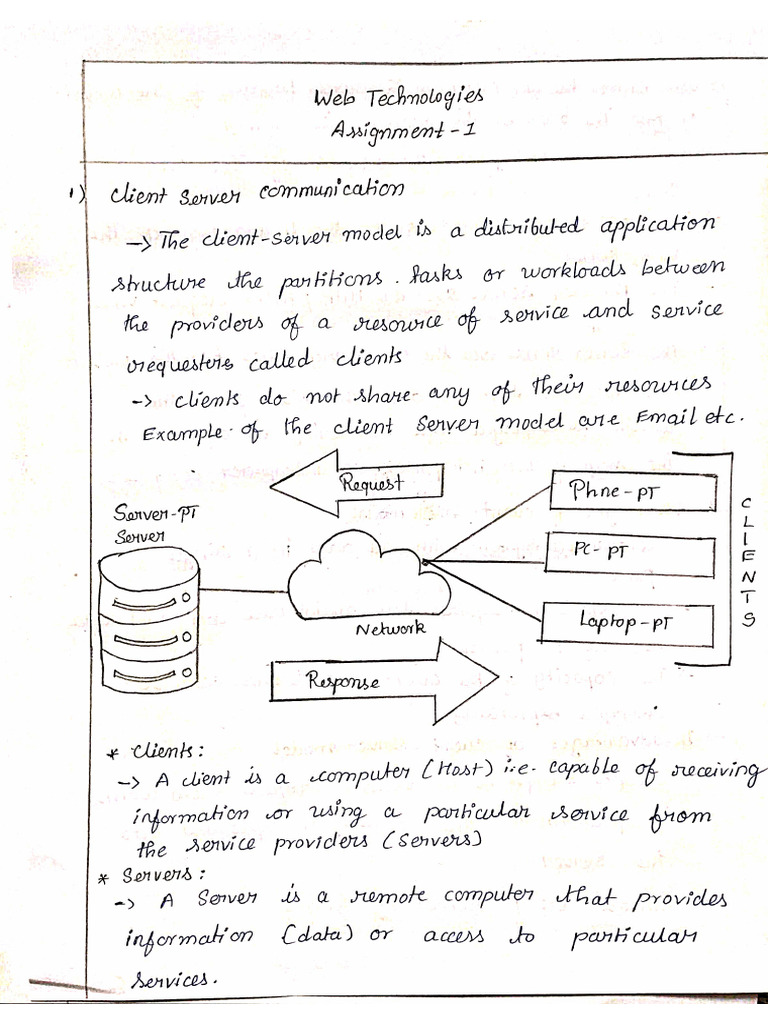 Web Technologies
Assignment-1
1) Client Server Communication
-> The client-server model is a distributed application
structure the partitions. tasks or workloads between
the providers of a resource of service and service
requesters called clients
-> clients do not share any of their resources
Example of the client Server model are Email etc.
Request
Server-PT
Server
Phne-PT
PC-PT
Laptop-PT
CLIENTS
Network
Response
* Clients:
-> A client is a computer (Host) i.e. capable of receiving
information or using a particular service from
the service providers (Servers)
* Servers:
-> A Server is a remote computer that provides
information (data) or access to particular
services.